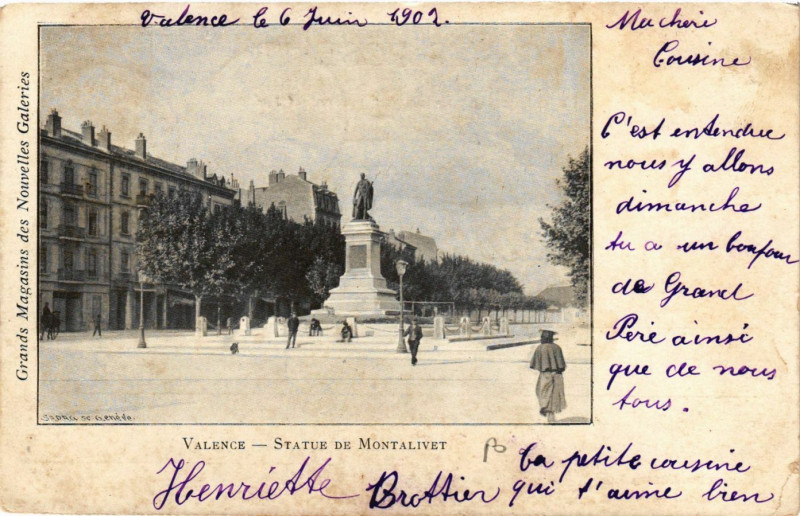 Valence le 6 Juin 1902.
Grands Magasins des Nouvelles Galeries
Ma chère
Cousine
C'est entendue
nous y allons
dimanche
tu a un bonjour
de Grand
Père ainsi
que de nous
tous.
VALENCE — STATUE DE MONTALIVET
Ta petite cousine
qui t'aime bien
Henriette Brottier